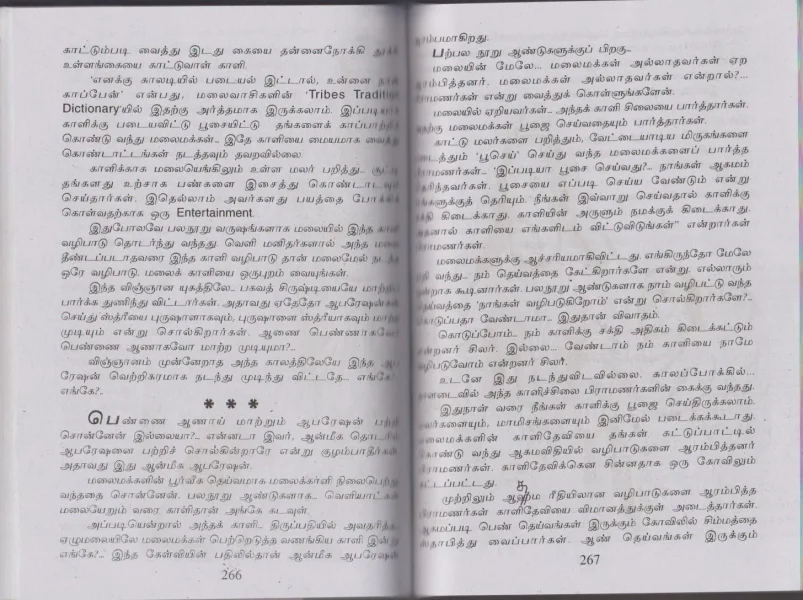 காட்டும்படி வைத்து இடது கையை தன்னைநோக்கி
உள்ளங்கையை காட்டுவாள் காளி.
'எனக்கு காலடியில் படையல் இட்டால், உன்னை நான்
காப்பேன்' என்பது, மலைவாசிகளின் 'Tribes Tradition
Dictionary'யில் இதற்கு அர்த்தமாக இருக்கலாம். இப்படியாக
காளிக்கு படையவிட்டு பூசையிட்டு தங்களைக் காப்பாற்றி
கொண்டு வந்து மலைமக்கள்.. இதே காளியை மையமாக வைத்து
கொண்டாட்டங்கள் நடத்தவும் தவறவில்லை.
காளிக்காக மலையெங்கிலும் உள்ள மலர் பறித்து..
தங்களது உற்சாக பண்களை இசைத்து கொண்டாடவும்
செய்தார்கள். இதெல்லாம் அவர்களது பயத்தை போக்கிக்
கொள்வதற்காக ஒரு Entertainment.
இதுபோலவே பலநூறு வருஷங்களாக மலையில் இந்த காளி
வழிபாடு தொடர்ந்து வந்தது. வெளி மனிதர்களால் அந்த மலை
தீண்டப்படாதவரை இந்த காளி வழிபாடு தான் மலைமேல் நடந்த
ஒரே வழிபாடு. மலைக் காளியை ஒருபுறம் வையுங்கள்.
இந்த விஞ்ஞான யுகத்திலே.. பகவத் சிருஷ்டியையே மாற்றி
பார்க்க துணிந்து விட்டார்கள். அதாவது ஏதேதோ ஆபரேஷன்கள்
செய்து ஸ்த்ரீயை புருஷாளாகவும், புருஷாளை ஸ்த்ரீயாகவும் மாற்ற
முடியும் என்று சொல்கிறார்கள். ஆணை பெண்ணாகவோ
பெண்ணை ஆணாகவோ மாற்ற முடியுமா?..
விஞ்ஞானம் முன்னேறாத அந்த காலத்திலேயே இந்த ஆப
ரேஷன் வெற்றிகரமாக நடந்து முடிந்து விட்டதே.. எங்கே?
எங்கே?..
* * *
பெண்ணை ஆணாய் மாற்றும் ஆபரேஷன் பற்றி
சொன்னேன் இல்லையா?.. என்னடா இவர், ஆன்மீக தொடரில்
ஆபரேஷனை பற்றிச் சொல்கிறாரே என்று குழம்பாதீர்கள்
அதாவது இது ஆன்மீக ஆபரேஷன்.
மலைமக்களின் பூர்வீக தெய்வமாக மலைக்காளி நிலைபெற்று
வந்ததை சொன்னேன். பலநூறு ஆண்டுகளாக.. வெளியாட்கள்
மலையேறும் வரை காளிதான் அங்கே கடவுள்.
அப்படியென்றால் அந்தக் காளி.. திருப்பதியில் அவதரித்த
ஏழுமலையிலே மலைமக்கள் பெற்றெடுத்த வணங்கிய காளி இன்று
எங்கே?... இந்த கேள்வியின் பதிலில்தான் ஆன்மீக ஆபரேஷன்
266
ஆரம்பமாகிறது.
பற்பல நூறு ஆண்டுகளுக்குப் பிறகு..
மலையின் மேலே... மலைமக்கள் அல்லாதவர்கள் ஏற
ஆரம்பித்தனர். மலைமக்கள் அல்லாதவர்கள் என்றால்?...
பிராமணர்கள் என்று வைத்துக் கொள்ளுங்களேன்.
மலையில் ஏறியவர்கள்.. அந்தக் காளி சிலையை பார்த்தார்கள்.
அதற்கு மலைமக்கள் பூஜை செய்வதையும் பார்த்தார்கள்.
காட்டு மலர்களை பறித்தும், வேட்டையாடிய மிருகங்களை
படைத்தும் 'பூசெய்' செய்து வந்த மலைமக்களைப் பார்த்த
பிராமணர்கள்.. 'இப்படியா பூசை செய்வது?... நாங்கள் ஆகமம்
அறிந்தவர்கள். பூசையை எப்படி செய்ய வேண்டும் என்று
எங்களுக்குத் தெரியும். நீங்கள் இவ்வாறு செய்வதால் காளிக்கு
சக்தி கிடைக்காது. காளியின் அருளும் நமக்குக் கிடைக்காது.
அதனால் காளியை எங்களிடம் விட்டுவிடுங்கள்" என்றார்கள்
பிராமணர்கள்.
மலைமக்களுக்கு ஆச்சரியமாகிவிட்டது. எங்கிருந்தோ மேலே
ஏறி வந்து.. நம் தெய்வத்தை கேட்கிறார்களே என்று. எல்லாரும்
ஒன்றாக கூடினார்கள். பலநூறு ஆண்டுகளாக நாம் வழிபட்டு வந்த
தெய்வத்தை 'நாங்கள் வழிபடுகிறோம்' என்று சொல்கிறார்களே?..
கொடுப்பதா வேண்டாமா.. இதுதான் விவாதம்.
கொடுப்போம்.. நம் காளிக்கு சக்தி அதிகம் கிடைக்கட்டும்
என்றனர் சிலர். இல்லை... வேண்டாம் நம் காளியை நாமே
வழிபடுவோம் என்றனர் சிலர்.
உடனே இது நடந்துவிடவில்லை. காலப்போக்கில்...
நாளடைவில் அந்த காளிச்சிலை பிராமணர்களின் கைக்கு வந்தது.
இதுநாள் வரை நீங்கள் காளிக்கு பூஜை செய்திருக்கலாம்.
மலர்களையும், மாமிசங்களையும் இனிமேல் படைக்கக்கூடாது.
மலைமக்களின் காளிதேவியை தங்கள் கட்டுப்பாட்டில்
கொண்டு வந்து ஆகமவிதியில் வழிபாடுகளை ஆரம்பித்தனர்
பிராமணர்கள். காளிதேவிக்கென சின்னதாக ஒரு கோவிலும்
கட்டப்பட்டது.
முற்றிலும் ஆகம ரீதியிலான வழிபாடுகளை ஆரம்பித்த
பிராமணர்கள் காளிதேவியை விமானத்துக்குள் அடைத்தார்கள்.
ஆகமப்படி பெண் தெய்வங்கள் இருக்கும் கோவிலில் சிம்மத்தை
ஸ்தாபித்து வைப்பார்கள். ஆண் தெய்வங்கள் இருக்கும்
267